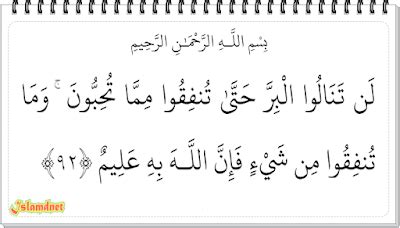 بِسْمِ اللَّـهِ الرَّحْمَـٰنِ الرَّحِيمِ
لَن تَنَالُوا الْبِرَّ حَتَّىٰ تُنفِقُوا مِمَّا تُحِبُّونَ ۚ وَمَا
تُنفِقُوا مِن شَيْءٍ فَإِنَّ اللَّـهَ بِهِ عَلِيمٌ ﴿٩٢﴾
Islamdnet